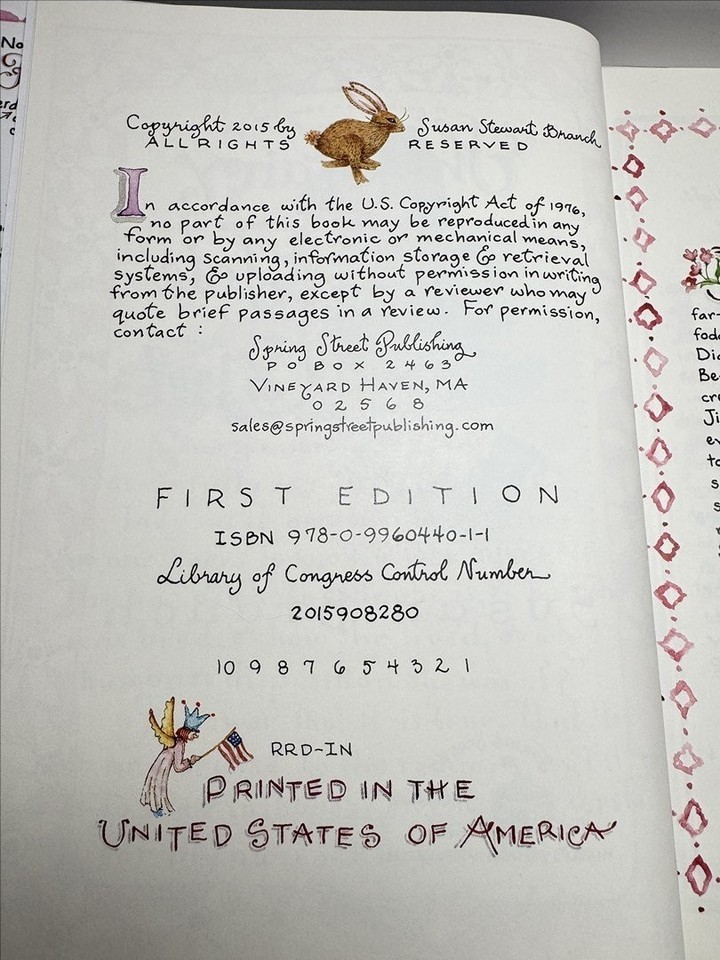 Copyright 2015 by Susan Stewart Branch
ALL RIGHTS RESERVED
In accordance with the U.S. Copyright Act of 1976,
no part of this book may be reproduced in any
form or by any electronic or mechanical means,
including scanning, information storage & retrieval
systems, & uploading without permission in writing
from the publisher, except by a reviewer who may
quote brief passages in a review. For permission,
contact :
Spring Street Publishing
P O B O X 2 4 6 3
VINEYARD HAVEN, MA
0 2 5 6 8
sales@springstreetpublishing.com
FIRST EDITION
ISBN 978-0-9960440-1-1
Library of Congress Control Number
2015908280
10 9 8 7 6 5 4 3 2 1
RRD-IN
PRINTED IN THE
UNITED STATES OF AMERICA
far-